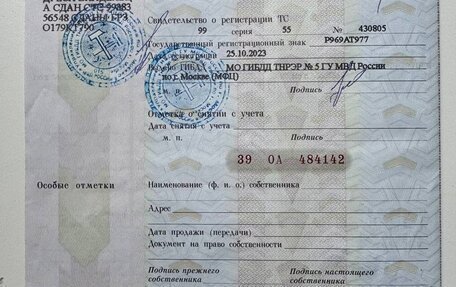 А СДАН СТС 99 83
56548 СДАНЫ ГРЗ
О179КТ790
Свидетельство о регистрации ТС
99 серия 55 № 430805
Государственный регистрационный знак Р969АТ977
Дата регистрации 25.10.2023
Выдано ГИБДД МО ГИБДД ТНРЭР № 5 ГУ МВД России
по г. Москве (МФЦ)
М. П. Подпись
Отметка о снятии с учета
Дата снятия с учета
М. П. Подпись
39 ОА 484142
Особые отметки
Наименование (ф. и. о.) собственника
Адрес
Дата продажи (передачи)
Документ на право собственности
Подпись прежнего собственника
Подпись настоящего собственника